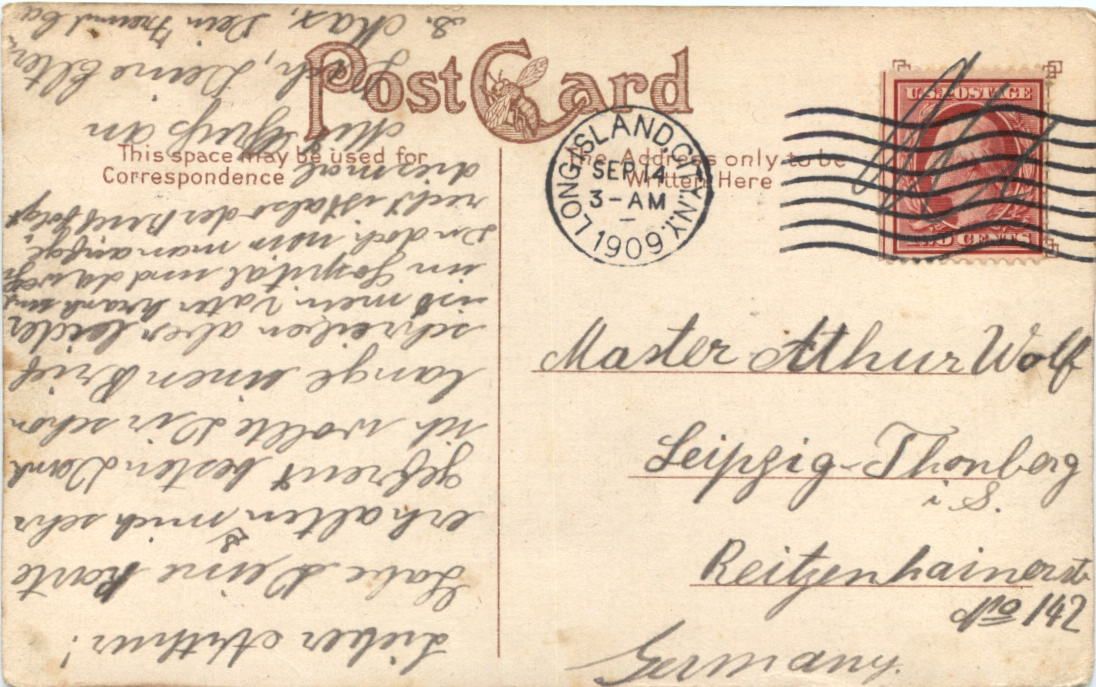 Post Card
This space may be used for
Correspondence
The Address only to be
Written Here
LONG ISLAND CITY, N.Y.
SEP 14
3-AM
1909
U.S. POSTAGE
TWO CENTS
Master Arthur Wolf
Leipzig-Thonberg
i S.
Reitzenhainerstr
No 142
Germany.
Lieber Arthur!
Habe Deine Karte
erhalten & mich sehr
gefreut besten Dank
ich wollte Dir schon
lange einen Brief
schreiben aber leider
ist mein Vater krank und
im Hospital und da weißt
Du doch man
recht ist also der Brief folgt
diesmal
Mit Gruß an
Dich, Deine Eltern,
& Max, Dein Freund